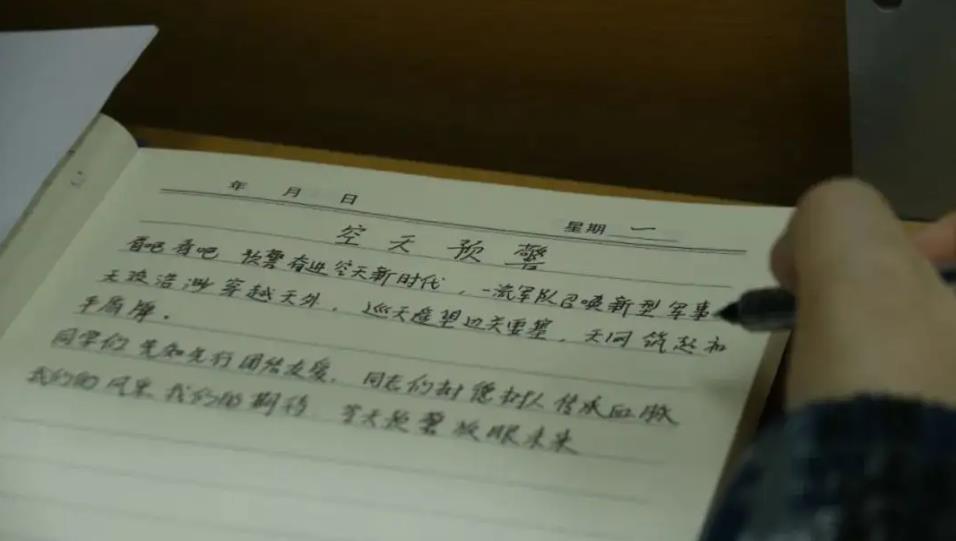 年 月 日 星期 一
空天预警
看吧看吧 预警奋进空天新时代，一流军队召唤新型军事
无穷浩渺穿越天外，巡天遥望边关要塞，天网筑起和
平屏障。
同学们先知先行团结友爱，同志们树德树人传承血脉
我们的风采我们的期待 空天预警放眼未来